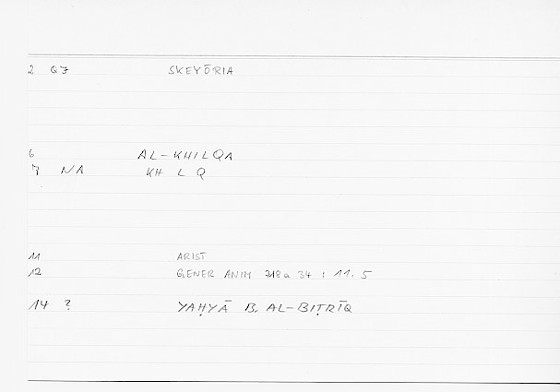 2 Q7 SKEYŌRIA
6 AL-KHILQA
7 NA KH L Q
11 ARIST
12 GENER ANIM 718a 34 : 11.5
14 ? YAḤYĀ B. AL-BIṬRĪQ